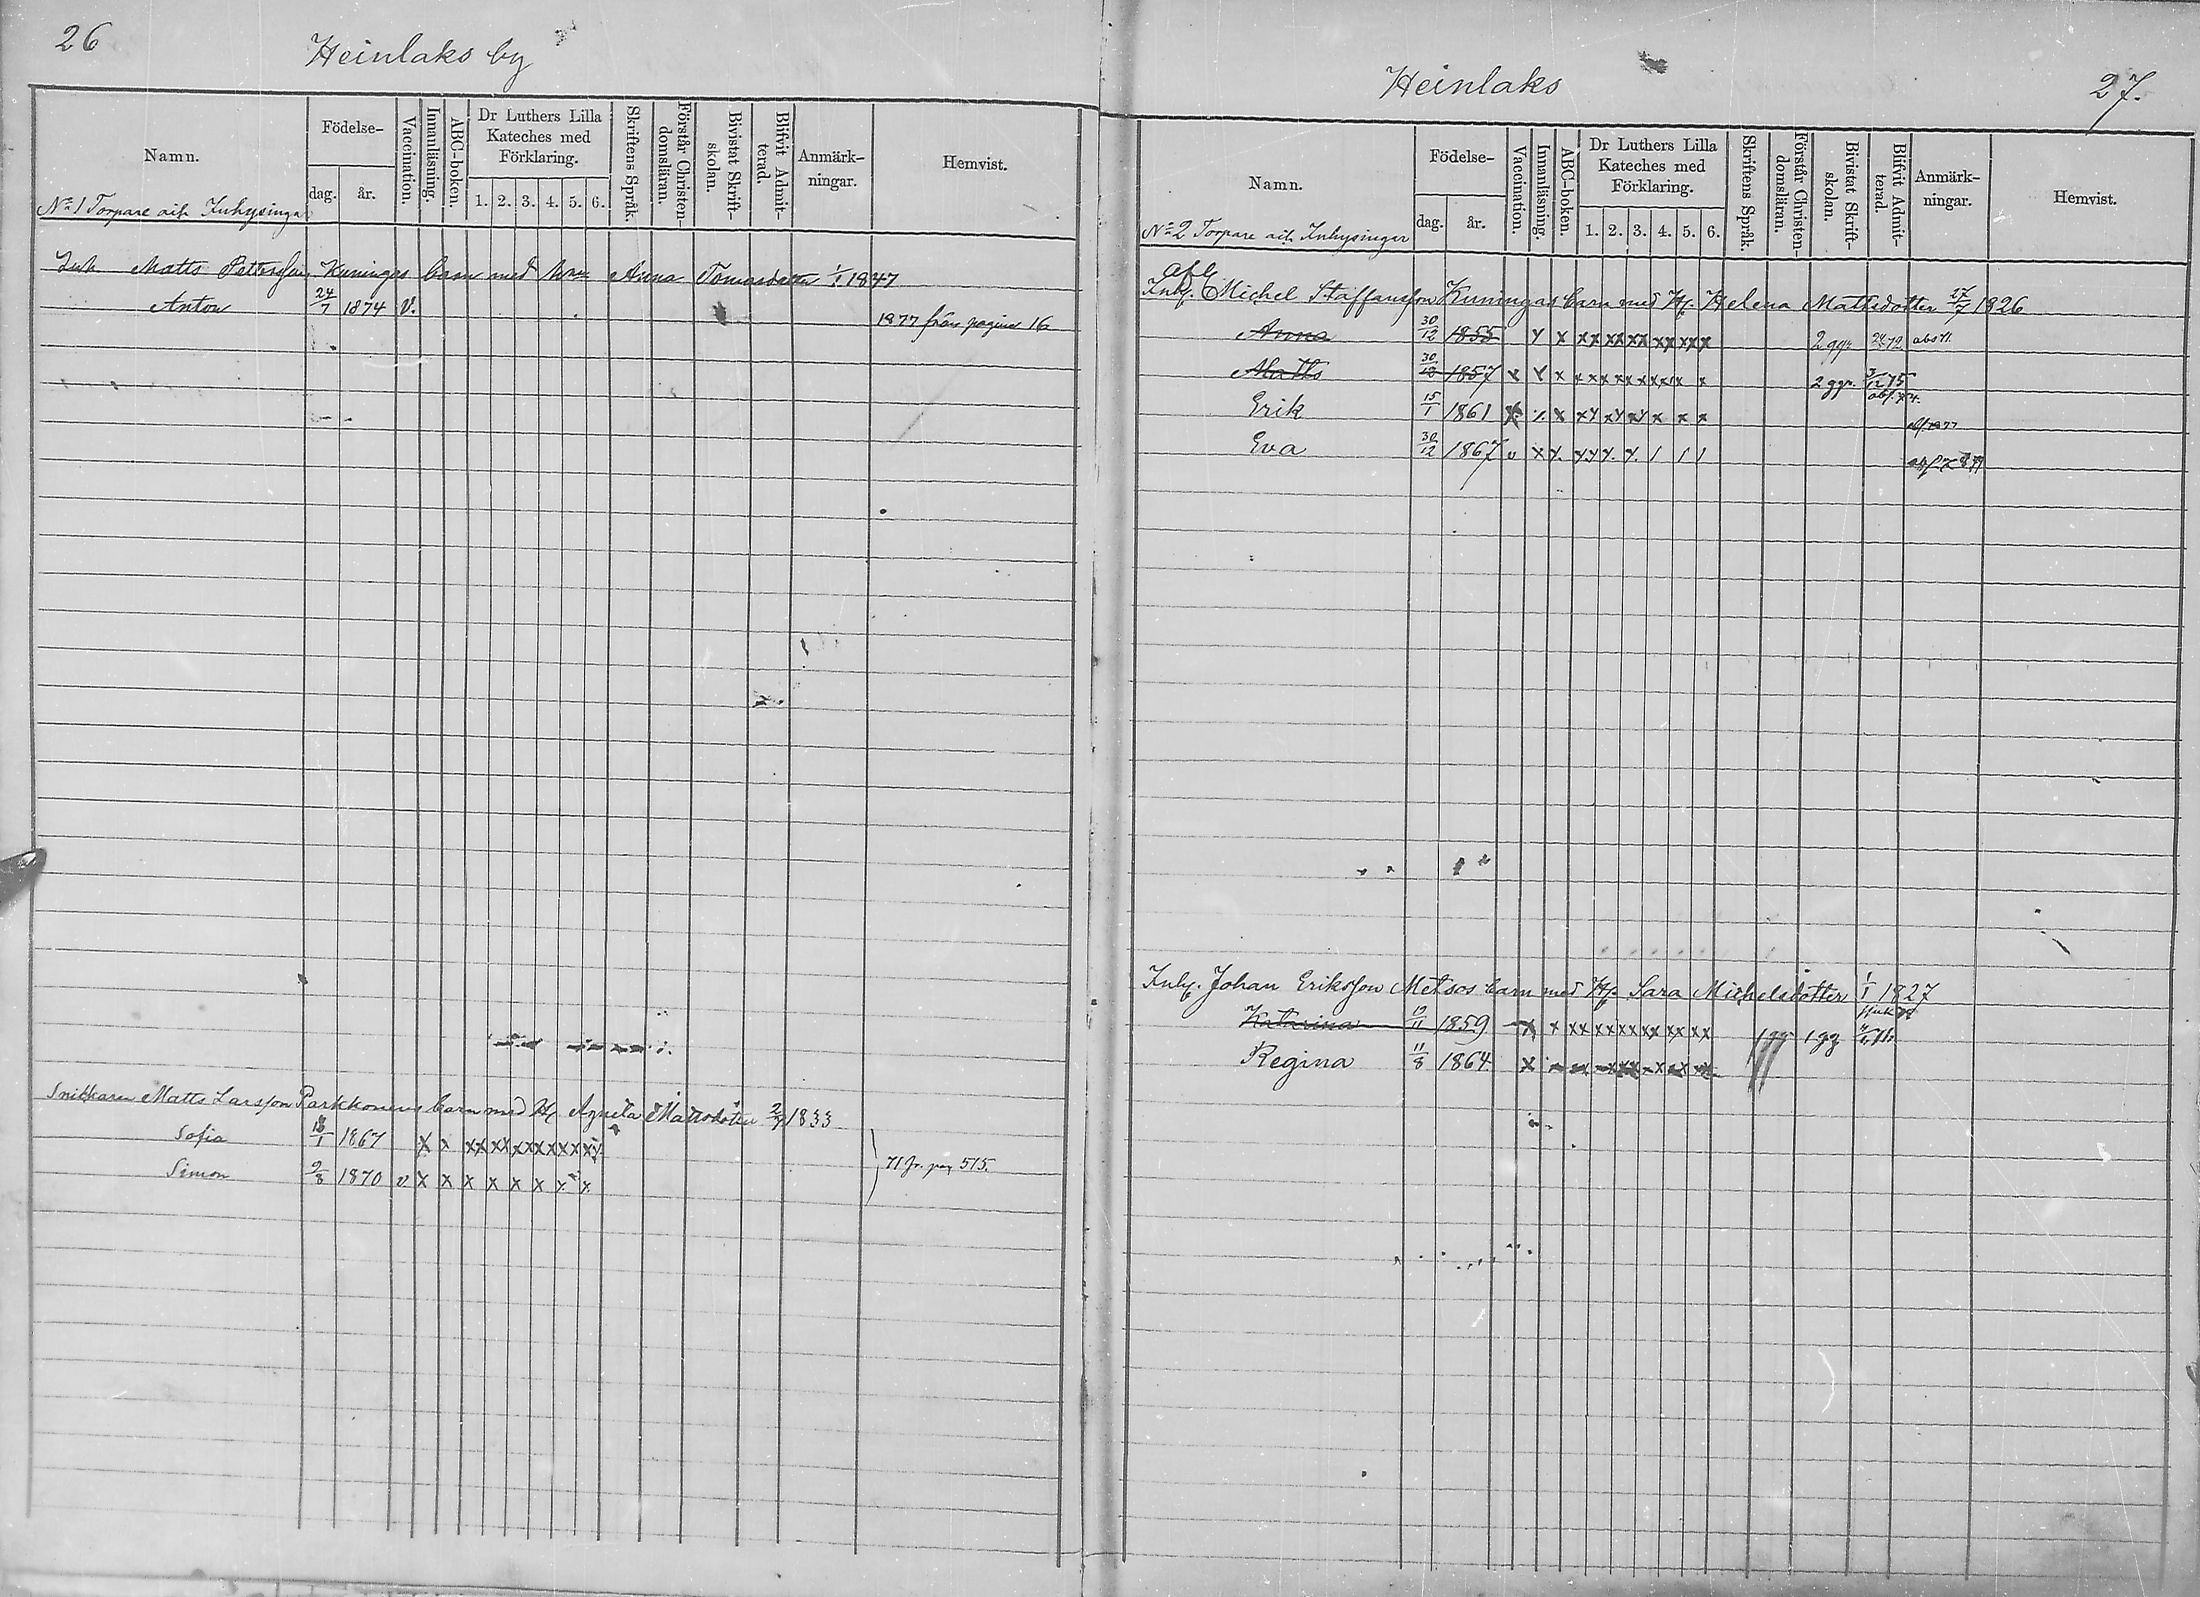 26
Heinlaks by
Namn.
Födelse-
dag.
år.
Vaccination.
Innanläsning.
ABC-boken.
Dr Luthers Lilla Kateches med Förklaring.
1. 2. 3. 4. 5. 6.
Skriftens Språk.
Förstår Christen-domsläran.
Bivistat Skrift-skolan.
Blifvit Admit-terad.
Anmärk-ningar.
Hemvist.
No 1 Torpare och Inhysingar
Inh Matts Pettersson Kuningas barn med hru Anna Tomasdotter 1/1 1847
Anton 24/7 1874 V. 1877 från pagina 16
Snickaren Matts Larsson Parkkonens barn med H. Agneta Mattsdotter 2/7 1833
Sofia 18/1 1867 x x xx xx xx xx xx xx
Simon 9/8 1870 v x x x x x x x x
71 fr. pag 515.
Heinlaks
27.
Namn.
Födelse-
dag.
år.
Vaccination.
Innanläsning.
ABC-boken.
Dr Luthers Lilla Kateches med Förklaring.
1. 2. 3. 4. 5. 6.
Skriftens Språk.
Förstår Christen-domsläran.
Bivistat Skrift-skolan.
Blifvit Admit-terad.
Anmärk-ningar.
Hemvist.
No 2 Torpare och Inhysingar
Inhy. Michel Staffansson Kuningas barn med H. Helena Mattsdotter 27/7 1826
Anna 30/12 1855 x x xx xx xx xx xx xx 2 ggr
Matts 30/12 1857 x x x xx xx xx xx x x 2 ggr. 3/12 75
Erik 15/1 1861 x x x xx xx xx x x x
Eva 30/12 1867 v x x. xx x. x. / / /
Inhy. Johan Eriksson Metsos barn med H. Sara Michelsdotter 1/1 1827
Katarina 19/11 1859 x x xx xx xx xx xx xx 1 gg
Regina 11/8 1864 x